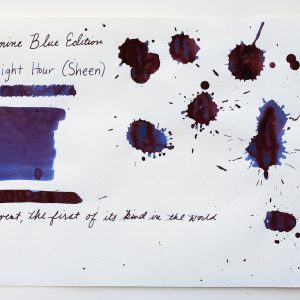 Blue Edition
ight Hour (Sheen)
the first of its kind in the world